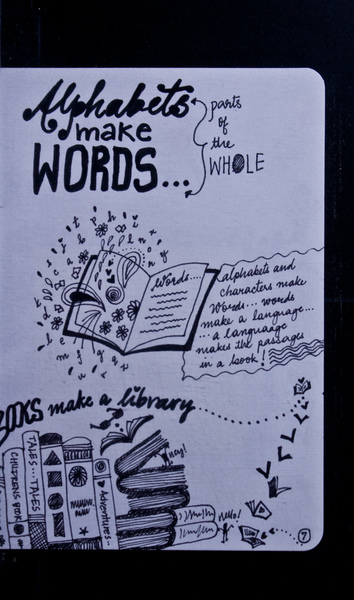 Alphabets
make
WORDS...
parts
of
the
WHOLE
Words...
alphabets and
characters make
Words... words
make a language...
... a language
makes the passages
in a book!
BOOKS make a library
TALES..TALES
CHILDREN'S BOOK
Adventures..
hey!
hello!
7